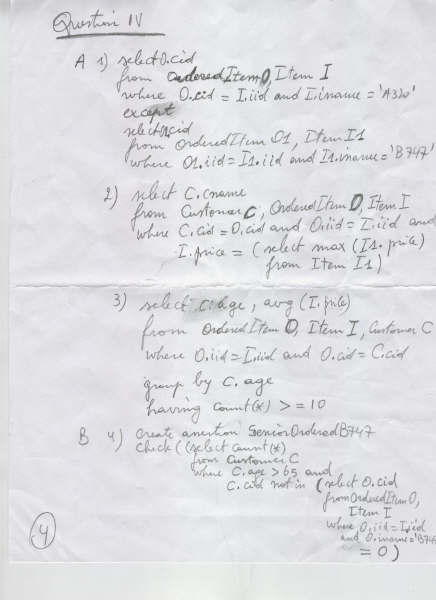 Question IV
A 1) select O.cid
from OrderedItem O, Item I
where O.cid = I.iid and I.iname = 'A320'
except
select O1.cid
from OrderedItem O1, Item I1
where O1.iid = I1.iid and I1.iname = 'B747'
2) select C.cname
from Customer C, OrderedItem O, Item I
where C.cid = O.cid and O.iid = I.iid and
I.price = (select max (I1.price)
from Item I1)
3) select C.age, avg (I.price)
from OrderedItem O, Item I, Customer C
where O.iid = I.iid and O.cid = C.cid
group by C.age
having count(*) >= 10
B 4) create assertion SeniorOrderedB747
check ((select count(*)
from Customer C
where C.age > 65 and
C.cid not in (select O.cid
from OrderedItem O,
Item I
where O.iid = I.iid
and O.iname = 'B747
= 0)
4